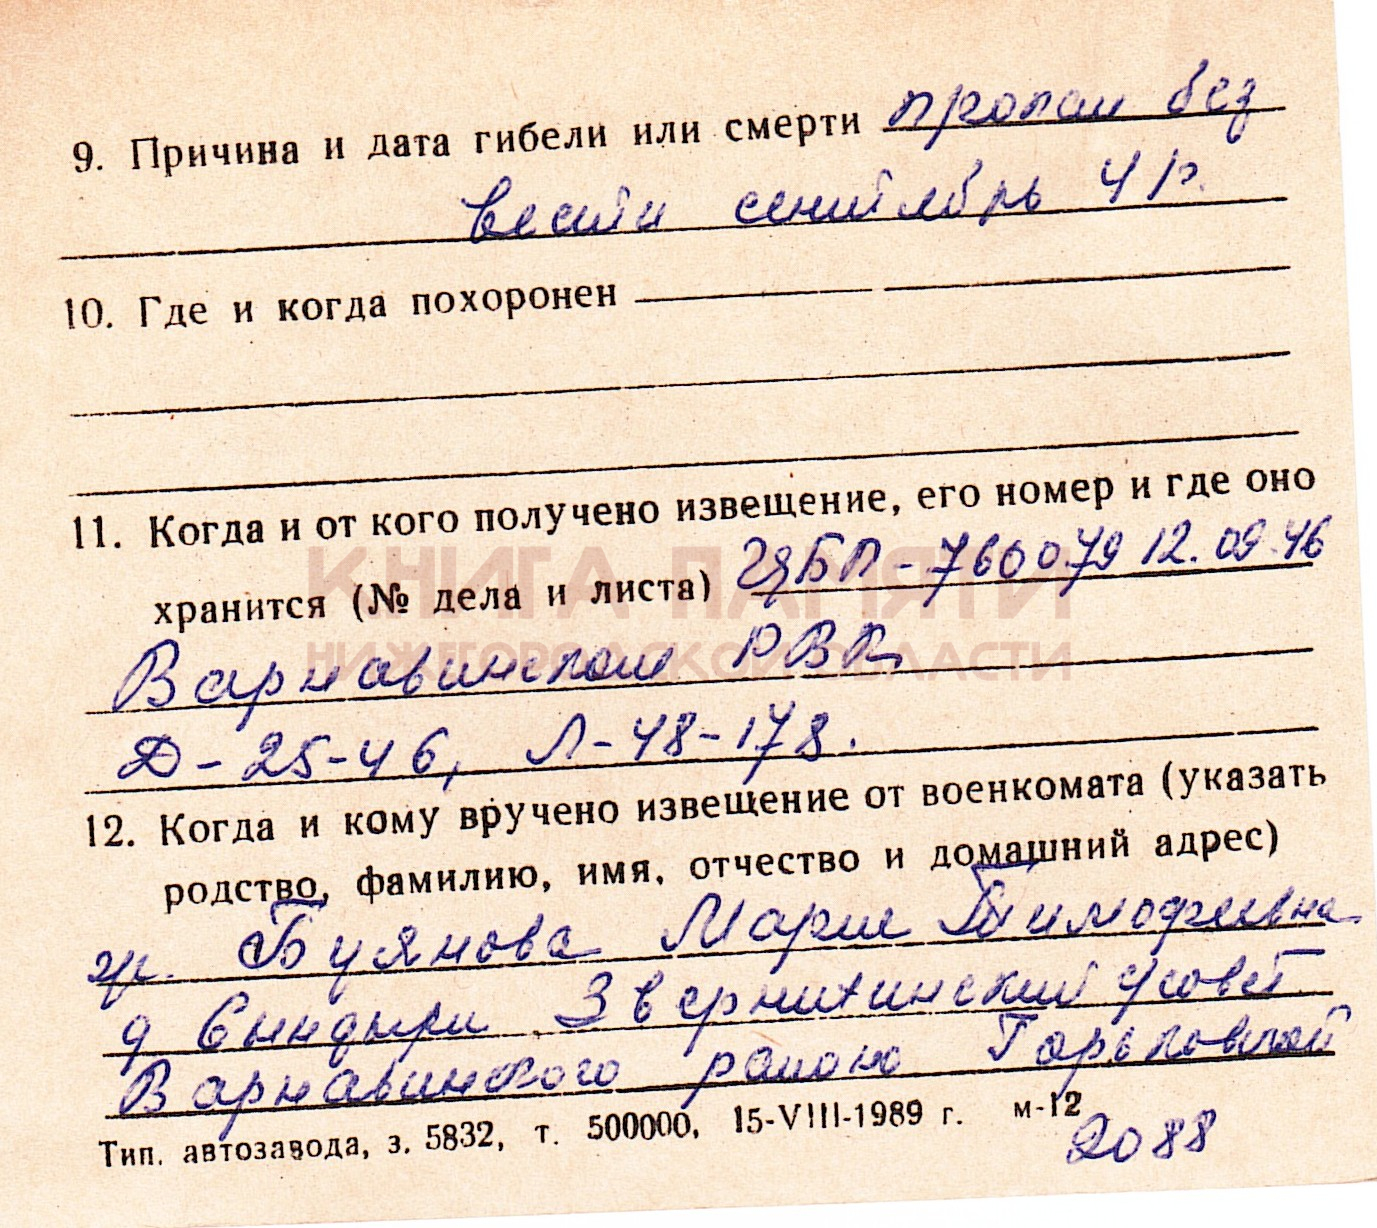 9. Причина и дата гибели или смерти пропал без
вести сентябрь 41г.
10. Где и когда похоронен
11. Когда и от кого получено извещение, его номер и где оно
хранится (№ дела и листа) 760079 12.09.46
КНИГА ПАМЯТИ
НИЖЕГОРОДСКОЙ ОБЛАСТИ
Варнавинском РВК
Д-25-46, Л-48-178.
12. Когда и кому вручено извещение от военкомата (указать
родство, фамилию, имя, отчество и домашний адрес)
гр. Буянова Мария Тимофеевна
д Сындыри Звернихинский с/совет
Варнавинского района Горьковской
Тип. автозавода, з. 5832, т. 500000, 15-VIII-1989 г. м-12
2088